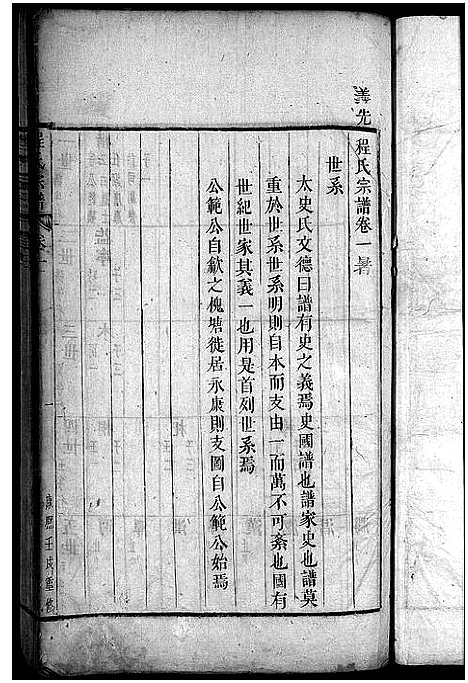 程氏宗譜卷一暑
世系
太史氏文德曰譜有史之義焉史國譜也譜家史也譜莫
重於世系世系明則自本而支由一而萬不可紊也國有
世紀世家其義一也用是首列世系焉
公範公自歙之槐塘徙居永康則支圖自公範公始焉
程氏宗譜 卷一
一
康熙壬戌重修